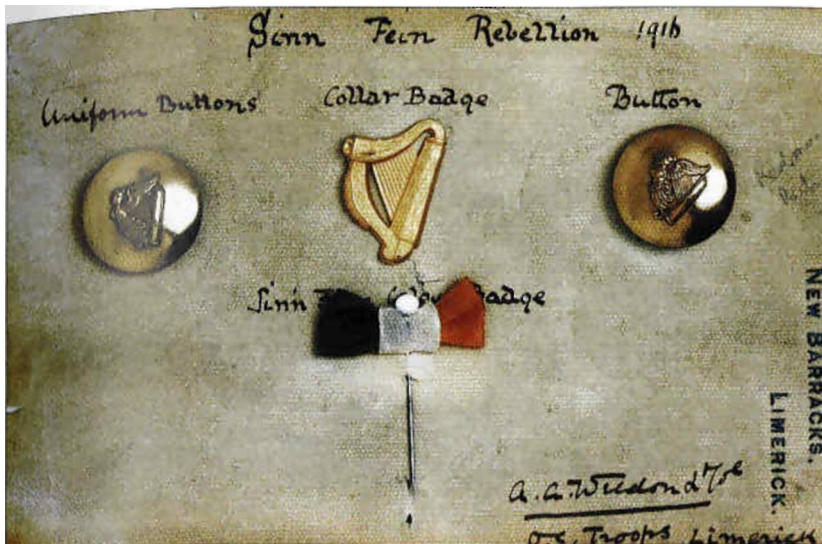 Sinn Fein Rebellion 1916
Uniform Buttons
Collar Badge
Button
Sinn Fein Colour Badge
NEW BARRACKS,
LIMERICK.
A. A. Weldon
O.C. Troops, Limerick